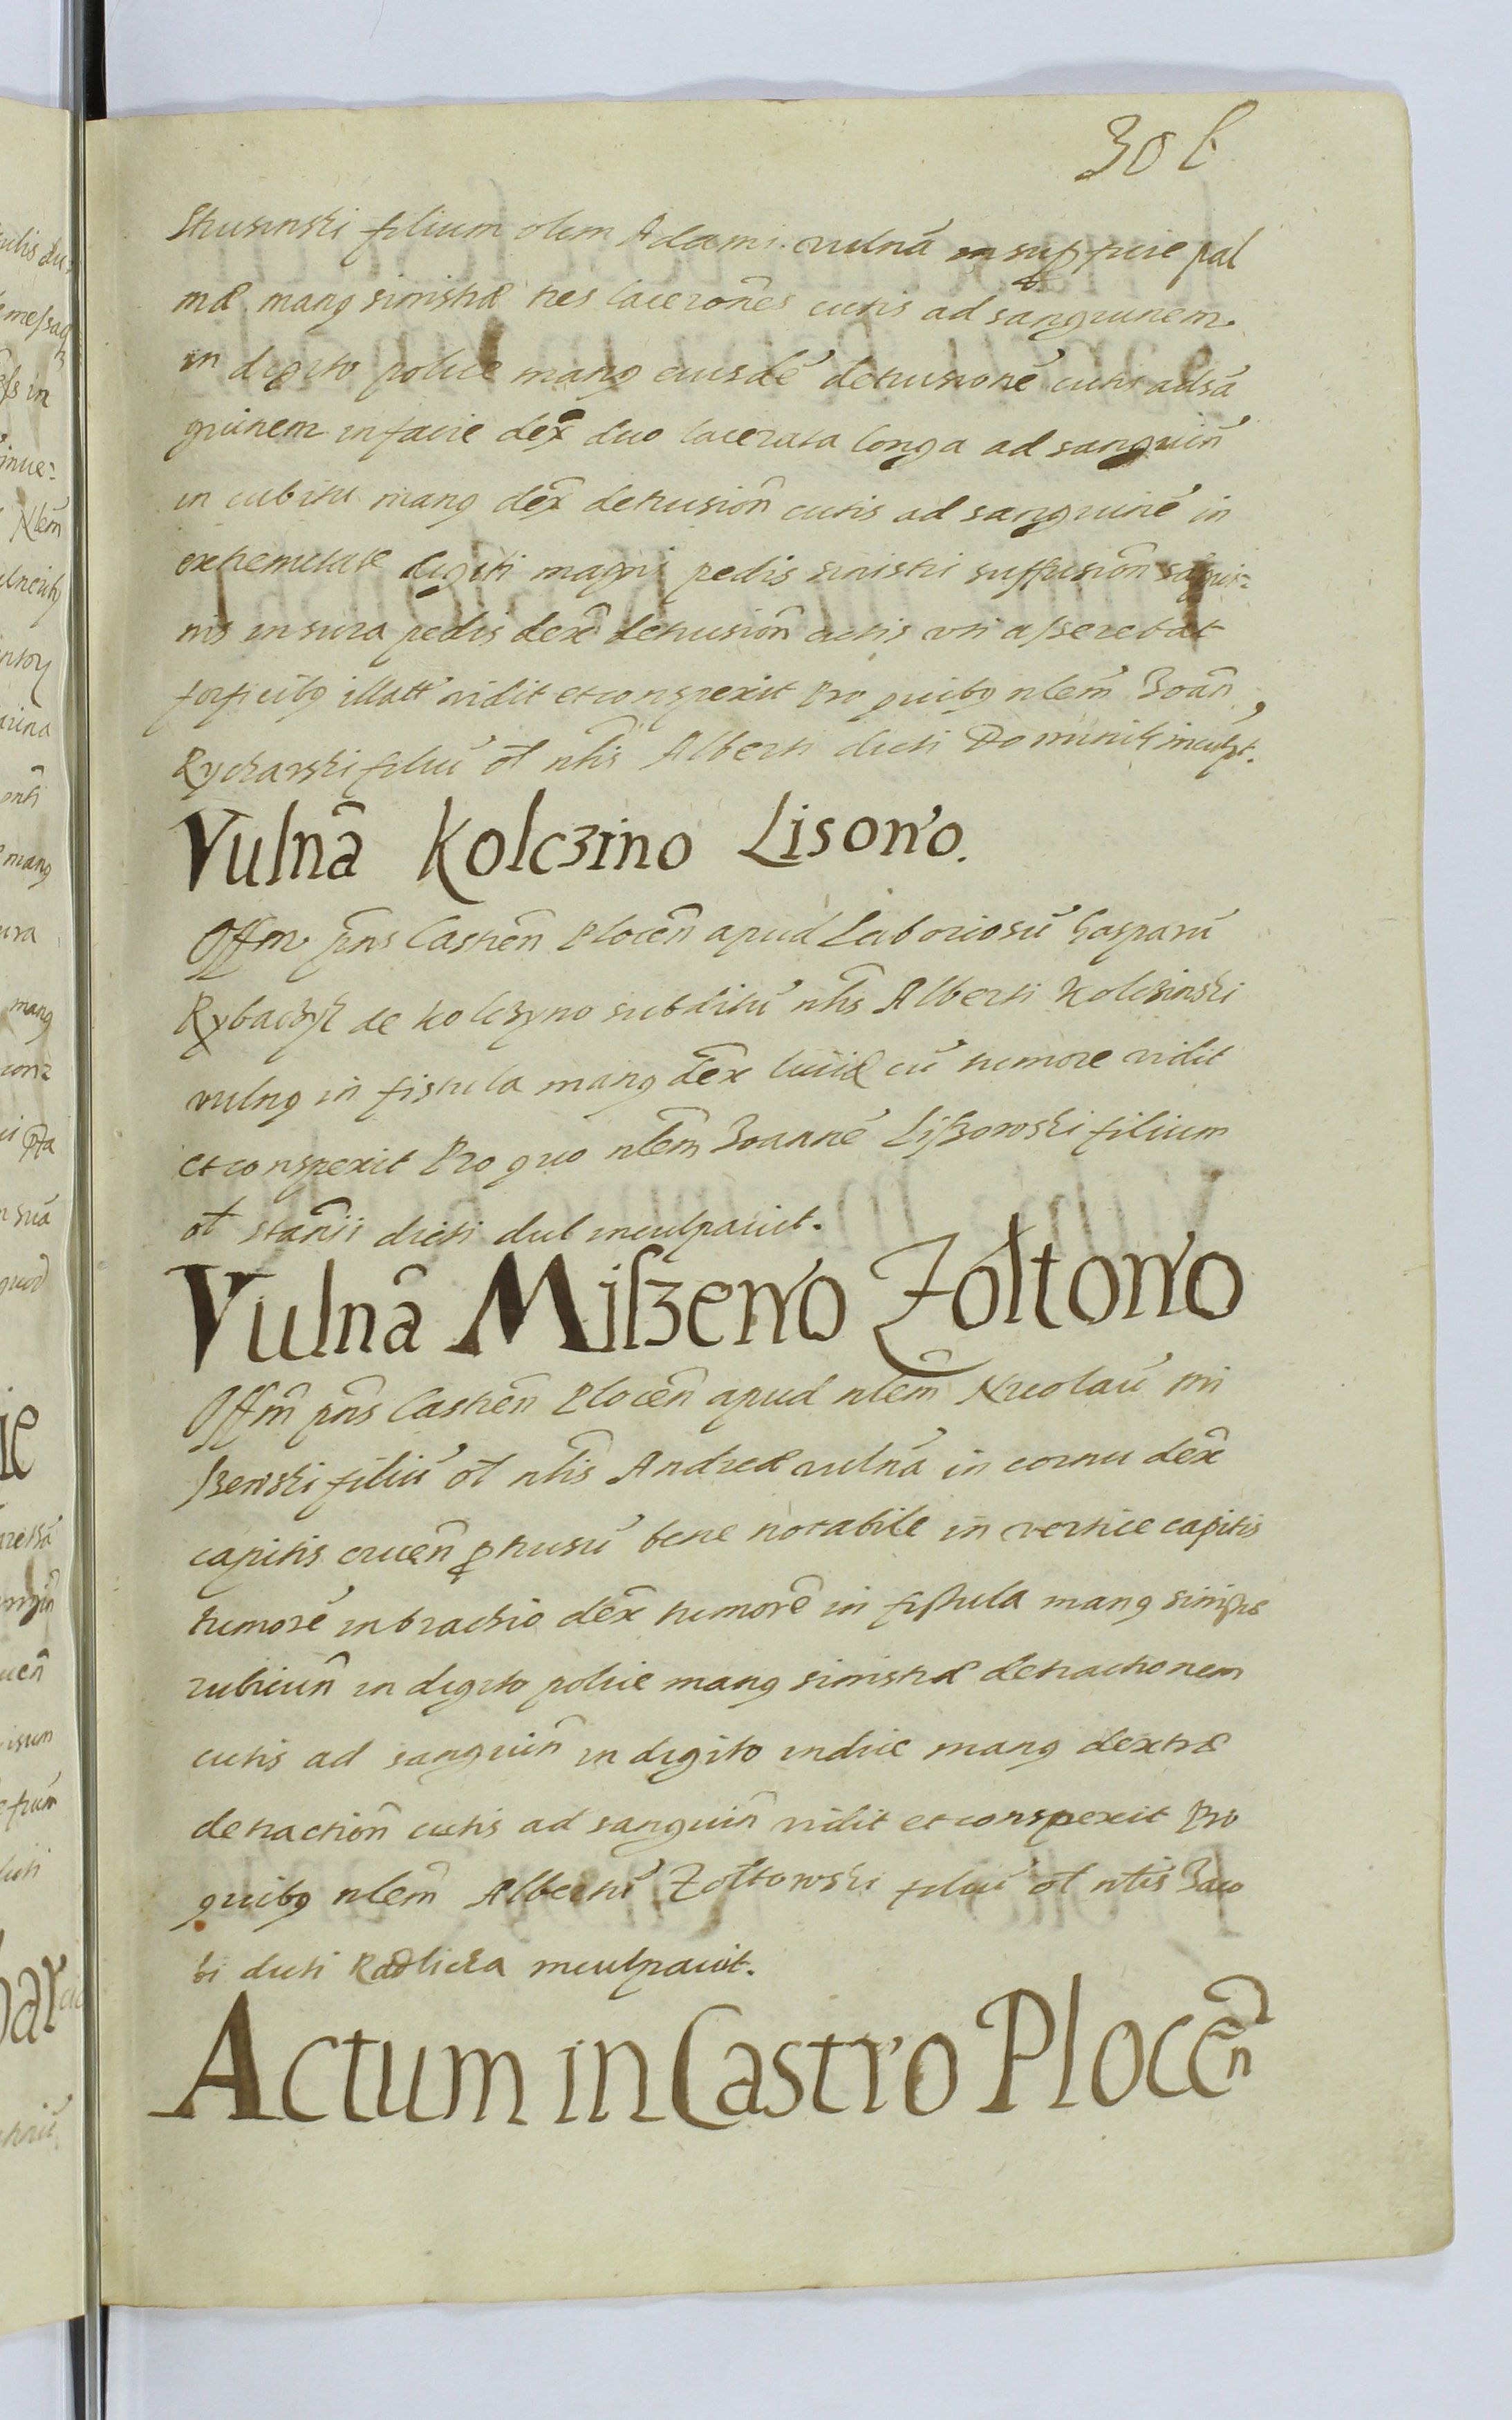 30 b
Strusinski filium olim Adami vulnã in supficie pal
mæ manq sinistræ tres lacerões cutis ad sanguinem.
in digito police manq eiusdẽ detrusionẽ cutis ad sã
guinem in facie dex̃ duo lacerata longa ad sanguiñ
in cubitu manq dex̃ detrusioñ cutis ad sanguinẽ in
extremitate digiti magni pedis sinistri suffusioñ sãgui=
nis in sura pedis dex̃ detrusioñ cutis vti asserebat
forficibq illatt vidit et conspexit Pro quibq nlem̃ Joañ
Rycharski filiũ ol̃ nlĩs Alberti dicti Dominik inculpt.
Vulnã Kolczino Lisowo.
Offm pñs Castreñ Ploceñ apud Laboriosũ Gasparũ
Rybaczyk de Kolczyno subditũ nlĩs Alberti Kolczinski
vulnq in fistula manq dex̃ liuidæ cũ tumore vidit
et conspexit Pro quo nlem̃ Joannẽ Liszowski filium
ol̃ stañii dicti dul inculpauit.
Vulnã Miszewo Zołtowo
Offm̃ pñs Castreñ Ploceñ apud nlem̃ Nicolaũ Mi
szewski filiũ ol̃ nlĩs Andreæ vulnã in cornu dex̃
capitis crueñ ptusũ bene notabile in vertice capitis
tumorẽ in brachio dex̃ tumorẽ in fistula manq sinistræ
rubicuñ in digito police manq sinistræ detractionem
cutis ad sanguiñ in digito indice manq dextræ
detractioñ cutis ad sanguiñ vidit et conspexit Pro
quibq nlem̃ Albertũ Zołtowski filiũ ol̃ nlĩs Jaco
bi dicti Radlicka inculpauit.
Actum in Castro Ploceñ